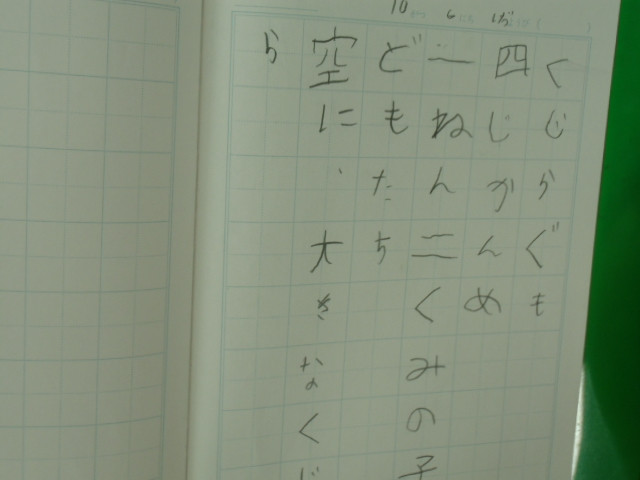 10 6
くじらぐも
四じかんめ
一ねん二くみの子
どもたち
空に、大きなくじ
ら